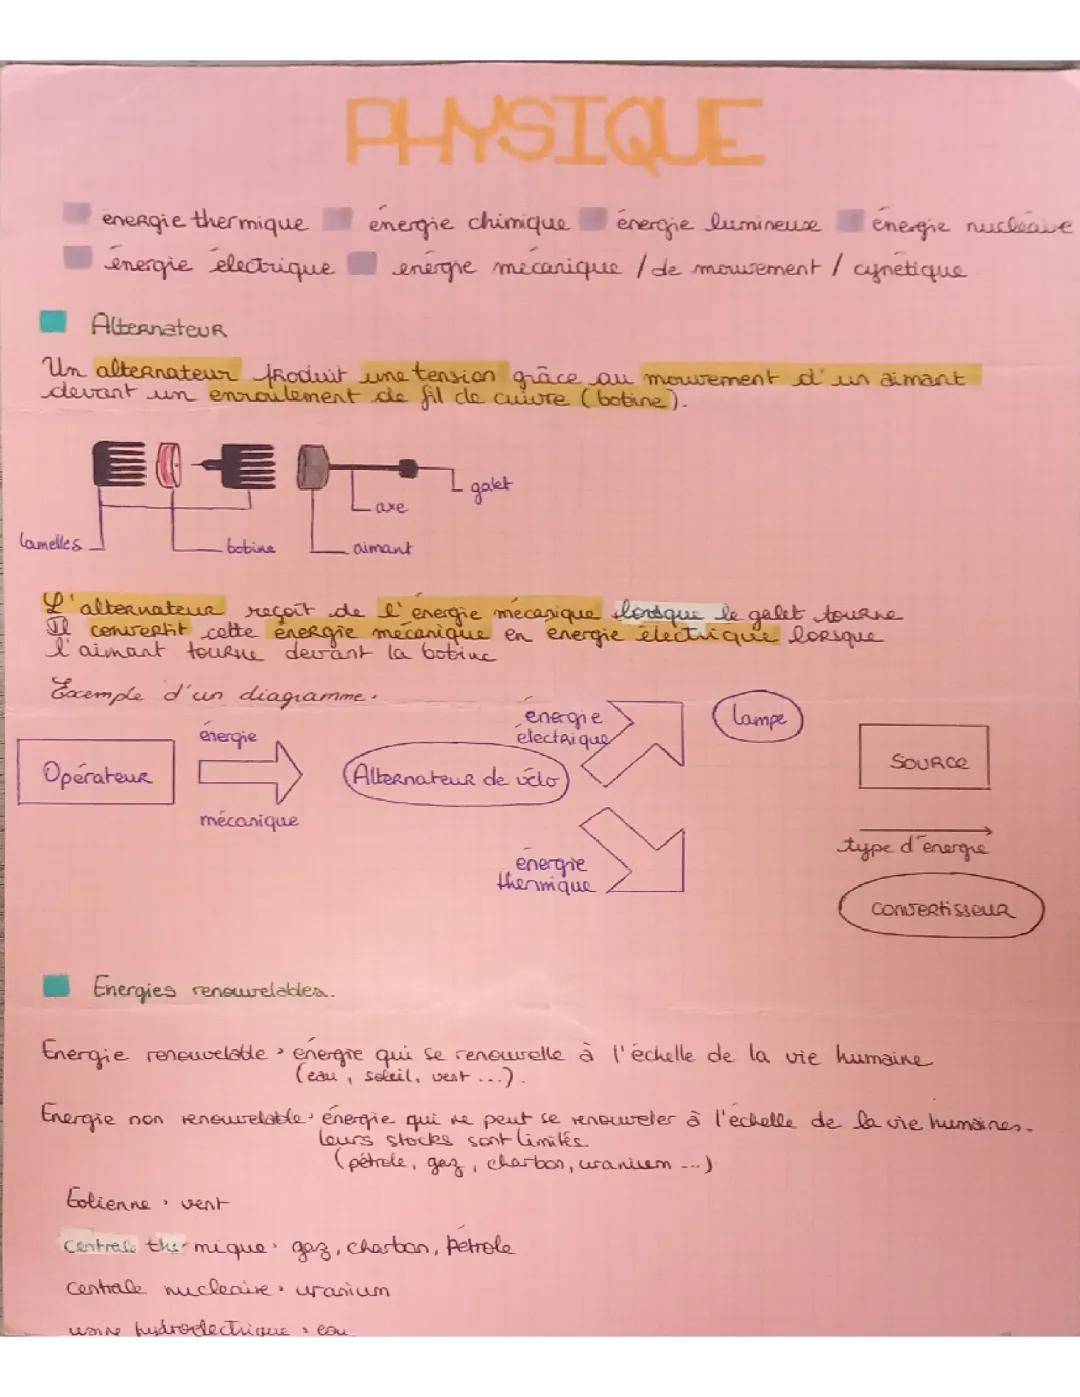 PHYSIQUE
énergie thermique énergie chimique énergie lumineuse énergie nucléaire
énergie électrique énergie mécanique / de mouvement / cynétique
Alternateur
Un alternateur produit une tension grâce au mouvement d'un aimant
devant un enroulement de fil de cuivre (bobine).
galet
axe
lamelles
bobine
aimant
L'alternateur reçoit de l'énergie mécanique lorsque le galet tourne
Il convertit cette énergie mécanique en énergie électrique lorsque
l'aimant tourne devant la bobine
Exemple d'un diagramme:
énergie
électrique
lampe
énergie
Opérateur
Alternateur de vélo
SOURCE
mécanique
type d'énergie
énergie
thermique
convertisseur
Energies renouvelables.
Energie renouvelable: énergie qui se renouvelle à l'échelle de la vie humaine
(eau, soleil, vent ...).
Energie non renouvelable: énergie qui ne peut se renouveler à l'échelle de la vie humaines.
leurs stocks sont limités.
(pétrole, gaz, charbon, uranium ...)
Eolienne: vent
Centrale thermique: gaz, charbon, Pétrole
centrale nucléaire: uranium
usine hydroelectrique: eau